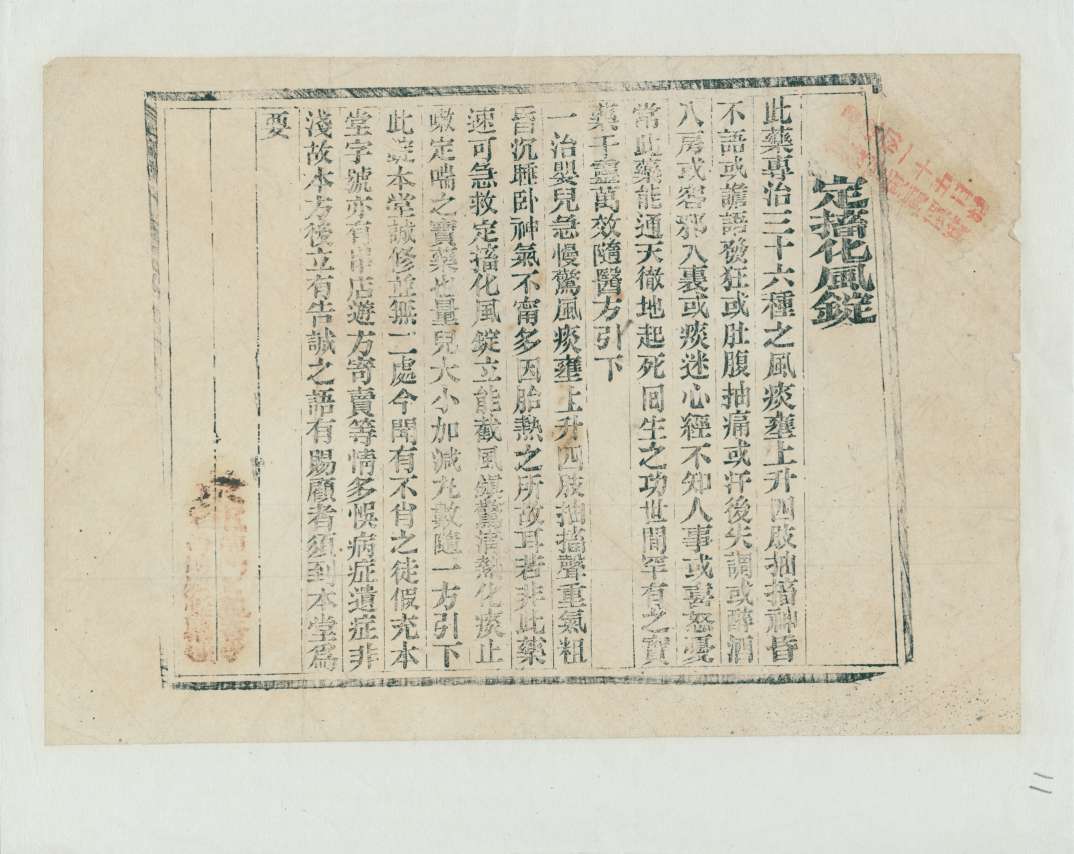 定搐化風錠
此藥專治三十六種之風痰壅上升四肢抽搐神昏
不語或譫語發狂或肚腹抽痛或汗後失調或醉酒
入房或客邪入裏或痰迷心經不知人事或喜怒憂
常此藥能通天徹地起死回生之功世間罕有之寶
藥千靈萬效隨醫方引下
一治嬰兒急慢驚風痰壅上升四肢抽搐聲重氣粗
昏沉睡卧神氣不甯多因胎熱之所故耳若非此藥
速可急救定搐化風錠立能截風鎮驚清熱化痰止
嗽定喘之寶藥也量兒大小加減允數隨一方引下
此錠本堂誠修並無二處今聞有不肖之徒假充本
堂字號亦有串店遊方寄賣等情多悞病症遺症非
淺故本方後立有告誡之語有賜顧者須到本堂爲
要
二